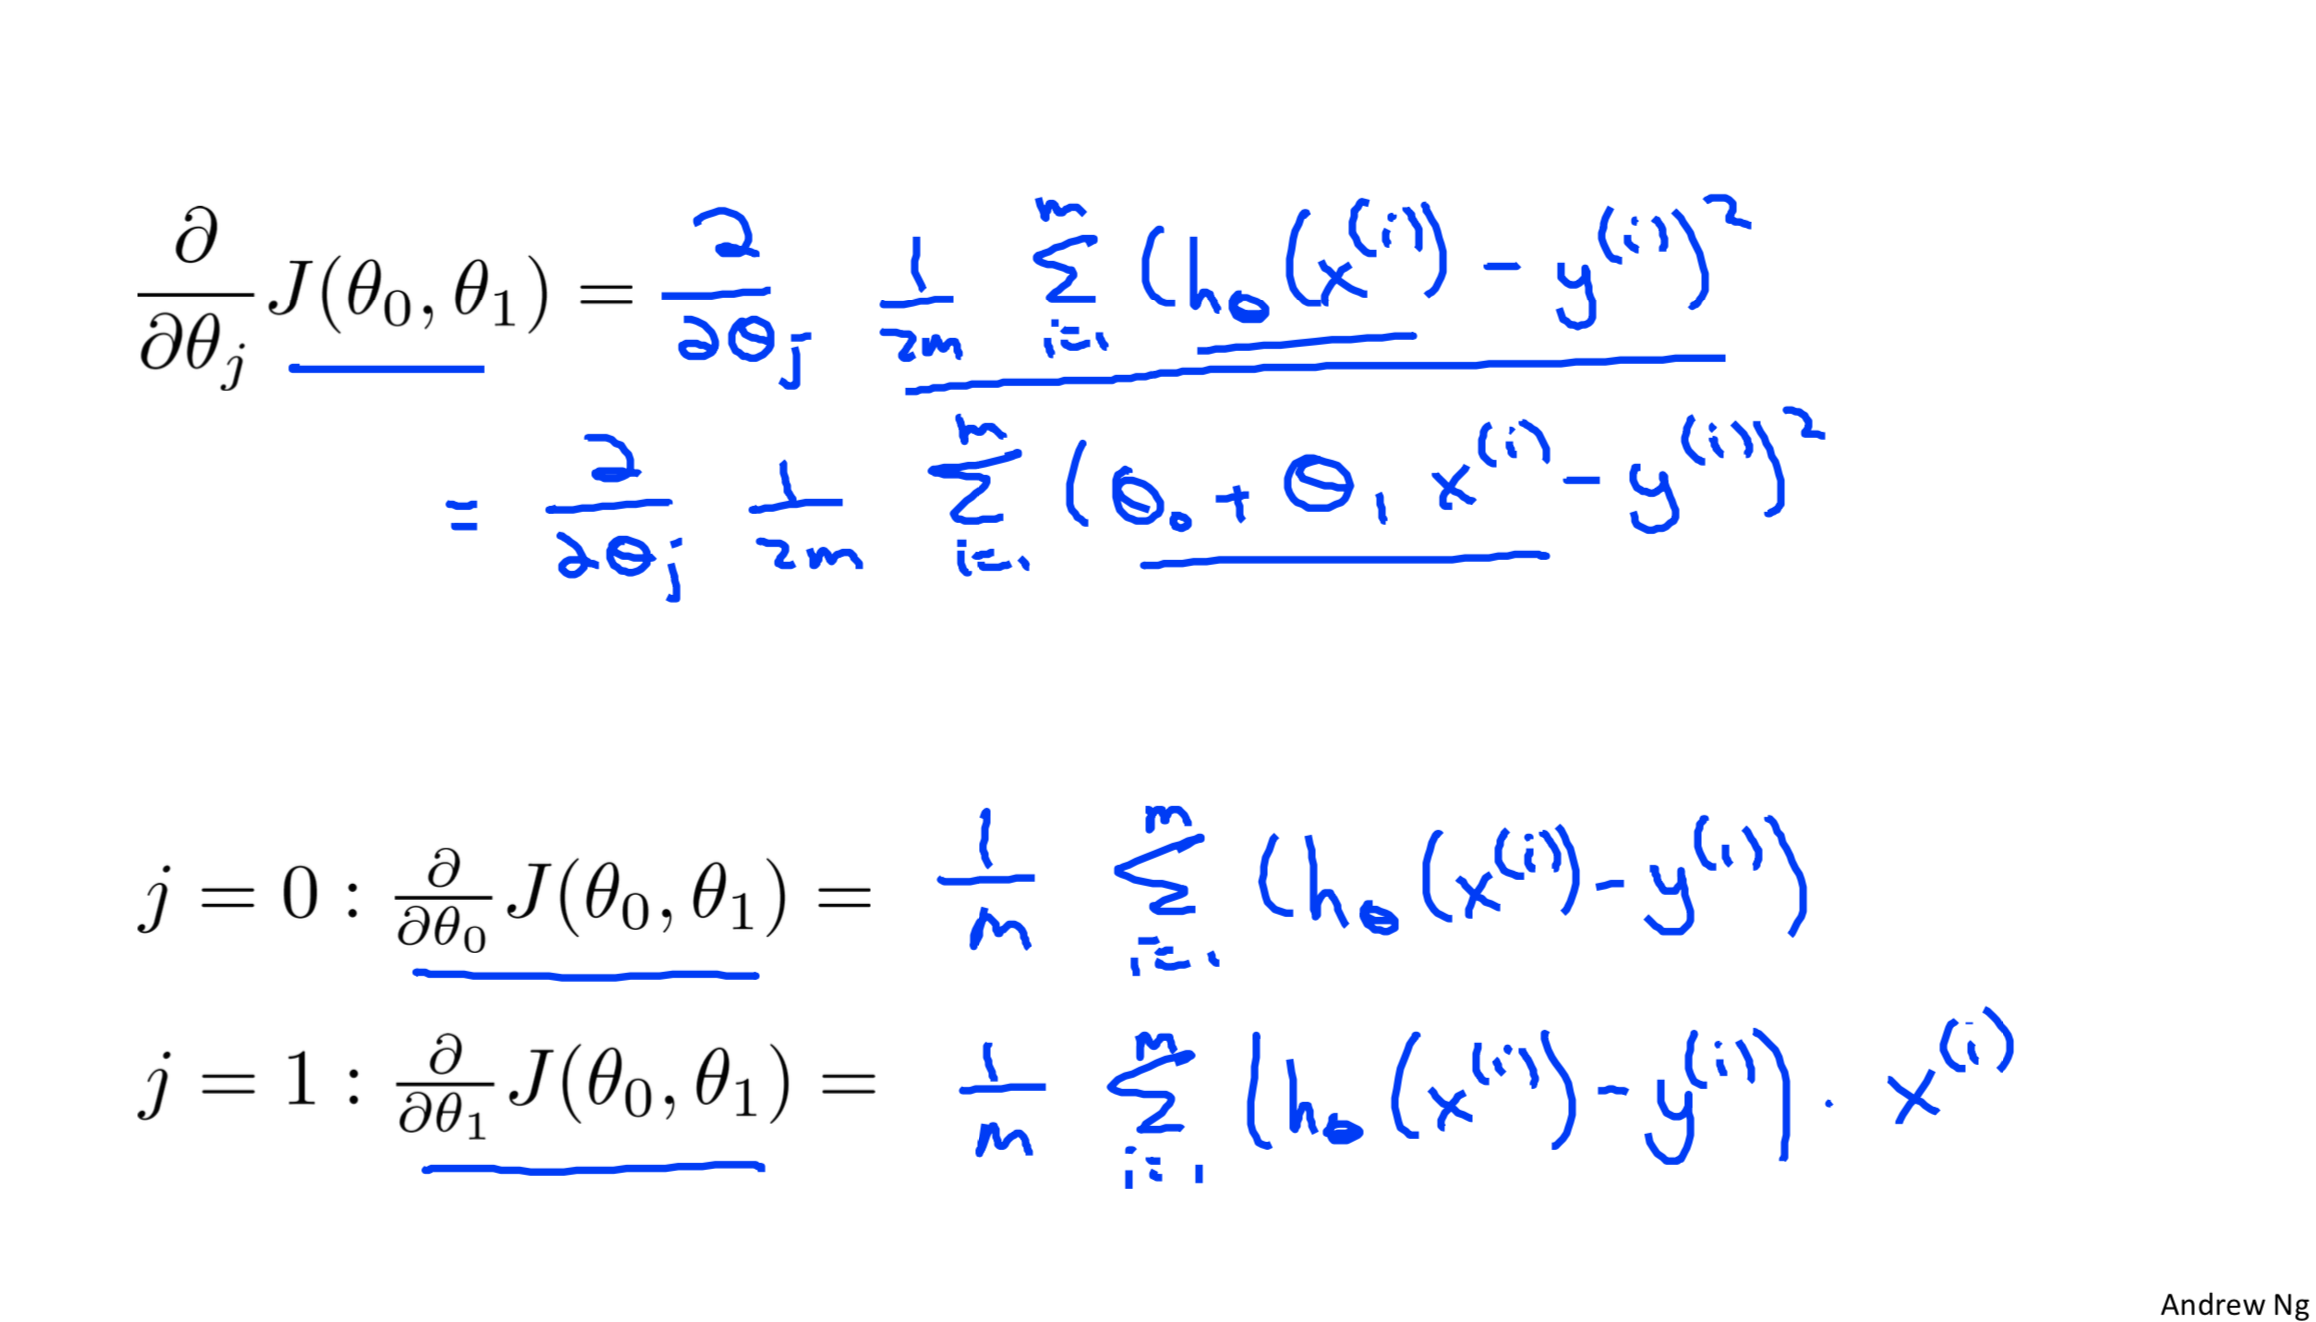 ∂/∂θ_j J(θ_0, θ_1) = ∂/∂θ_j 1/2m Σ_{i=1}^{m} (h_θ(x^{(i)}) - y^{(i)})^2
= ∂/∂θ_j 1/2m Σ_{i=1}^{m} (θ_0 + θ_1 x^{(i)} - y^{(i)})^2
j = 0 : ∂/∂θ_0 J(θ_0, θ_1) = 1/m Σ_{i=1}^{m} (h_θ(x^{(i)}) - y^{(i)})
j = 1 : ∂/∂θ_1 J(θ_0, θ_1) = 1/m Σ_{i=1}^{m} (h_θ(x^{(i)}) - y^{(i)}) · x^{(i)}
Andrew Ng